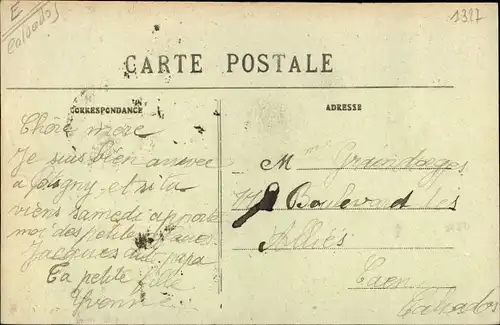 E
Calvados
1327
CARTE POSTALE
CORRESPONDANCE
ADRESSE
Chère mère
Je suis bien arrivée
à et si tu
viens samedi apporte
moi des petites
Jacques papa
Ta petite fille
Yvonne
M Graindorges
Boulevard des
Alliés
Caen
Calvados